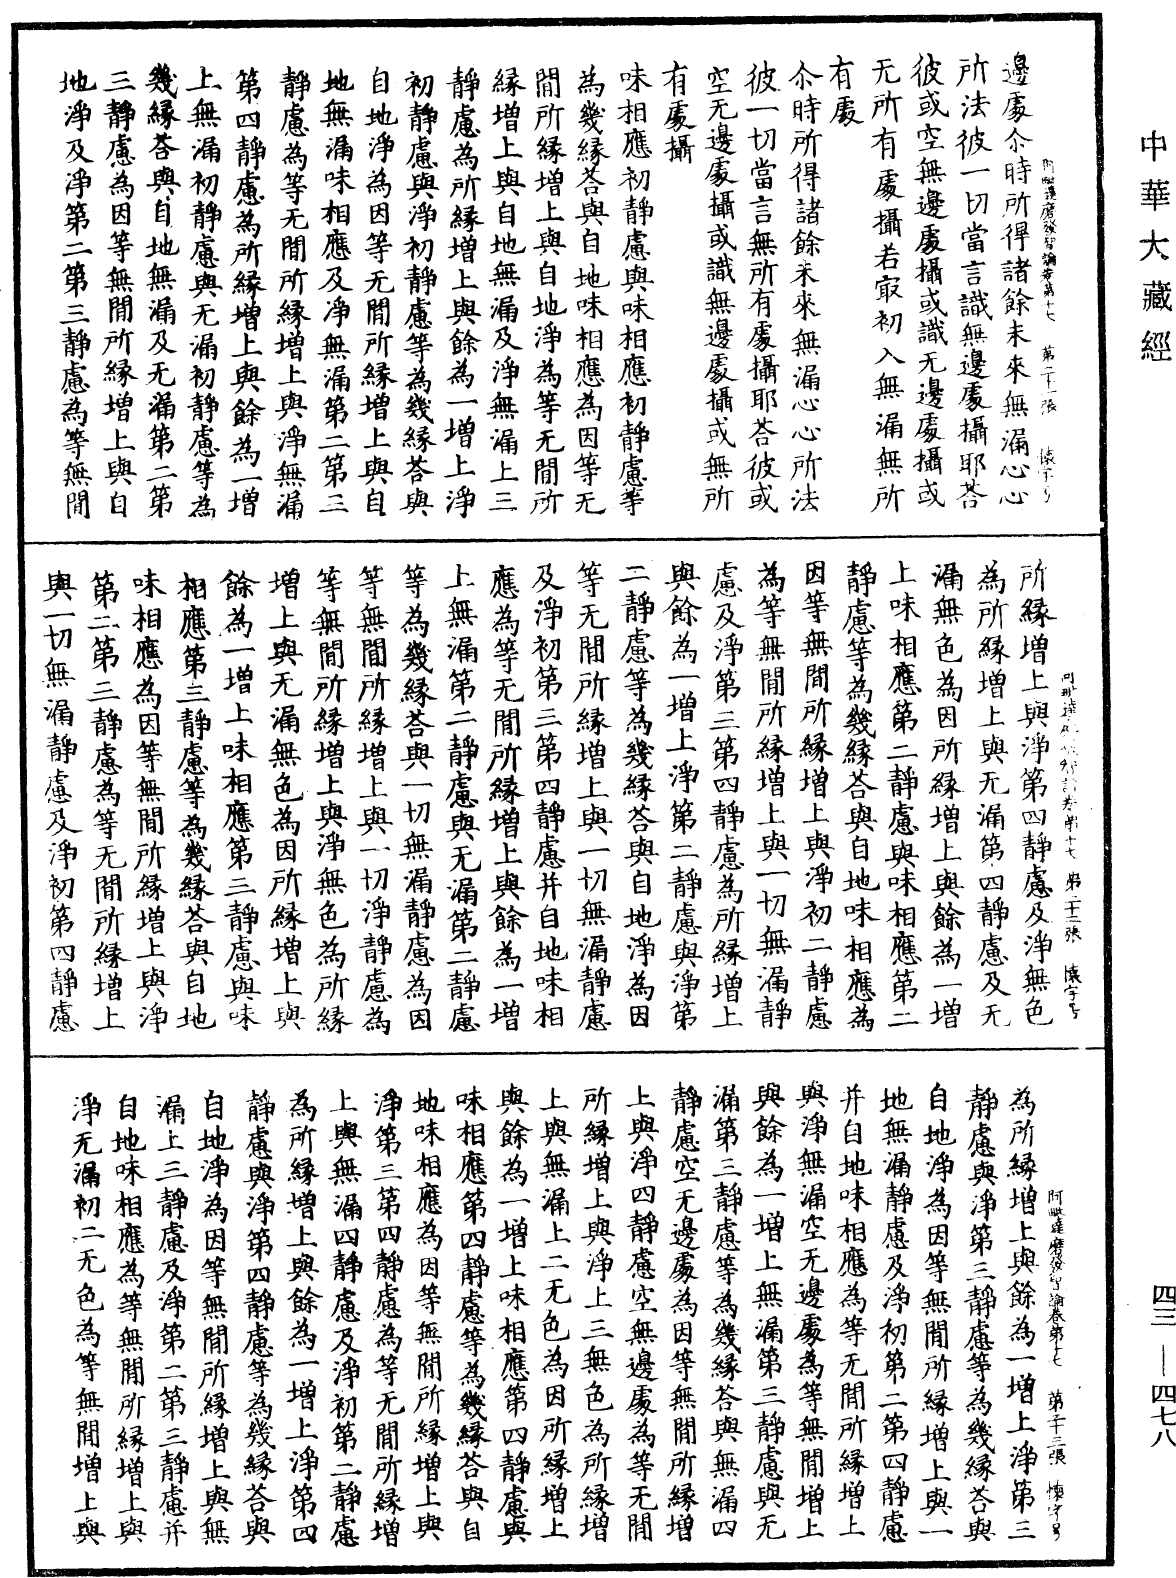 中華大藏經
邊處尒時所得諸餘未來無漏心心
所法彼一切當言識無邊處攝耶荅
彼或空無邊處攝或識无邊處攝或
无所有處攝若㝡初入無漏無所
有處
尒時所得諸餘未來無漏心心所法
彼一切當言無所有處攝耶荅彼或
空无邊處攝或識無邊處攝或無所
有處攝
味相應初静慮與味相應初静慮等
為幾緣荅與自地味相應為因等无
間所緣增上與自地淨為等无間所
緣增上與自地無漏及淨無漏上三
静慮為所緣增上與餘為一增上淨
初静慮與淨初静慮等為幾緣荅與
自地淨為因等无間所緣增上與自
地無漏味相應及淨無漏第二第三
静慮為等无間所緣增上與淨無漏
第四静慮為所緣增上與餘為一增
上無漏初静慮與无漏初静慮等為
幾緣荅與自地無漏及无漏第二第
三静慮為因等無間所緣增上與自
地淨及淨第二第三静慮為等無間
阿毗達磨發智論卷第十七 第二十一張 懐字号
所緣增上與淨第四静慮及淨無色
為所緣增上與无漏第四静慮及无
漏無色為因所緣增上與餘為一增
上味相應第二静慮與味相應第二
静慮等為幾緣荅與自地味相應為
因等無間所緣增上與淨初二静慮
為等無間所緣增上與一切無漏静
慮及淨第三第四静慮為所緣增上
與餘為一增上淨第二静慮與淨第
二静慮等為幾緣荅與自地淨為因
等无間所緣增上與一切無漏静慮
及淨初第三第四静慮并自地味相
應為等无間所緣增上與餘為一增
上無漏第二静慮與无漏第二静慮
等為幾緣荅與一切無漏静慮為因
等無間所緣增上與一切淨静慮為
等無間所緣增上與淨無色為所緣
增上與无漏無色為因所緣增上與
餘為一增上味相應第三静慮與味
相應第三静慮等為幾緣荅與自地
味相應為因等無間所緣增上與淨
第二第三静慮為等无間所緣增上
與一切無漏静慮及淨初第四静慮
阿毗達磨發智論卷第十七 第二十二張 懐字号
為所緣增上與餘為一增上淨第三
静慮與淨第三静慮等為幾緣荅與
自地淨為因等無間所緣增上與一
地無漏静慮及淨初第二第四静慮
并自地味相應為等无間所緣增上
與淨無漏空无邊處為等無間增上
與餘為一增上無漏第三静慮與无
漏第三静慮等為幾緣荅與無漏四
静慮空无邊處為因等無間所緣增
上與淨四静慮空無邊處為等无間
所緣增上與淨上三無色為所緣增
上與無漏上二无色為因所緣增上
與餘為一增上味相應第四静慮與
味相應第四静慮等為幾緣荅與自
地味相應為因等無間所緣增上與
淨第三第四静慮為等无間所緣增
上與無漏四静慮及淨初第二静慮
為所緣增上與餘為一增上淨第四
静慮與淨第四静慮等為幾緣荅與
自地淨為因等無間所緣增上與無
漏上三静慮及淨第二第三静慮并
自地味相應為等無間所緣增上與
淨无漏初二无色為等無間增上與
阿毗達磨發智論卷第十七 第二十三張 懐字号
四三——四七八